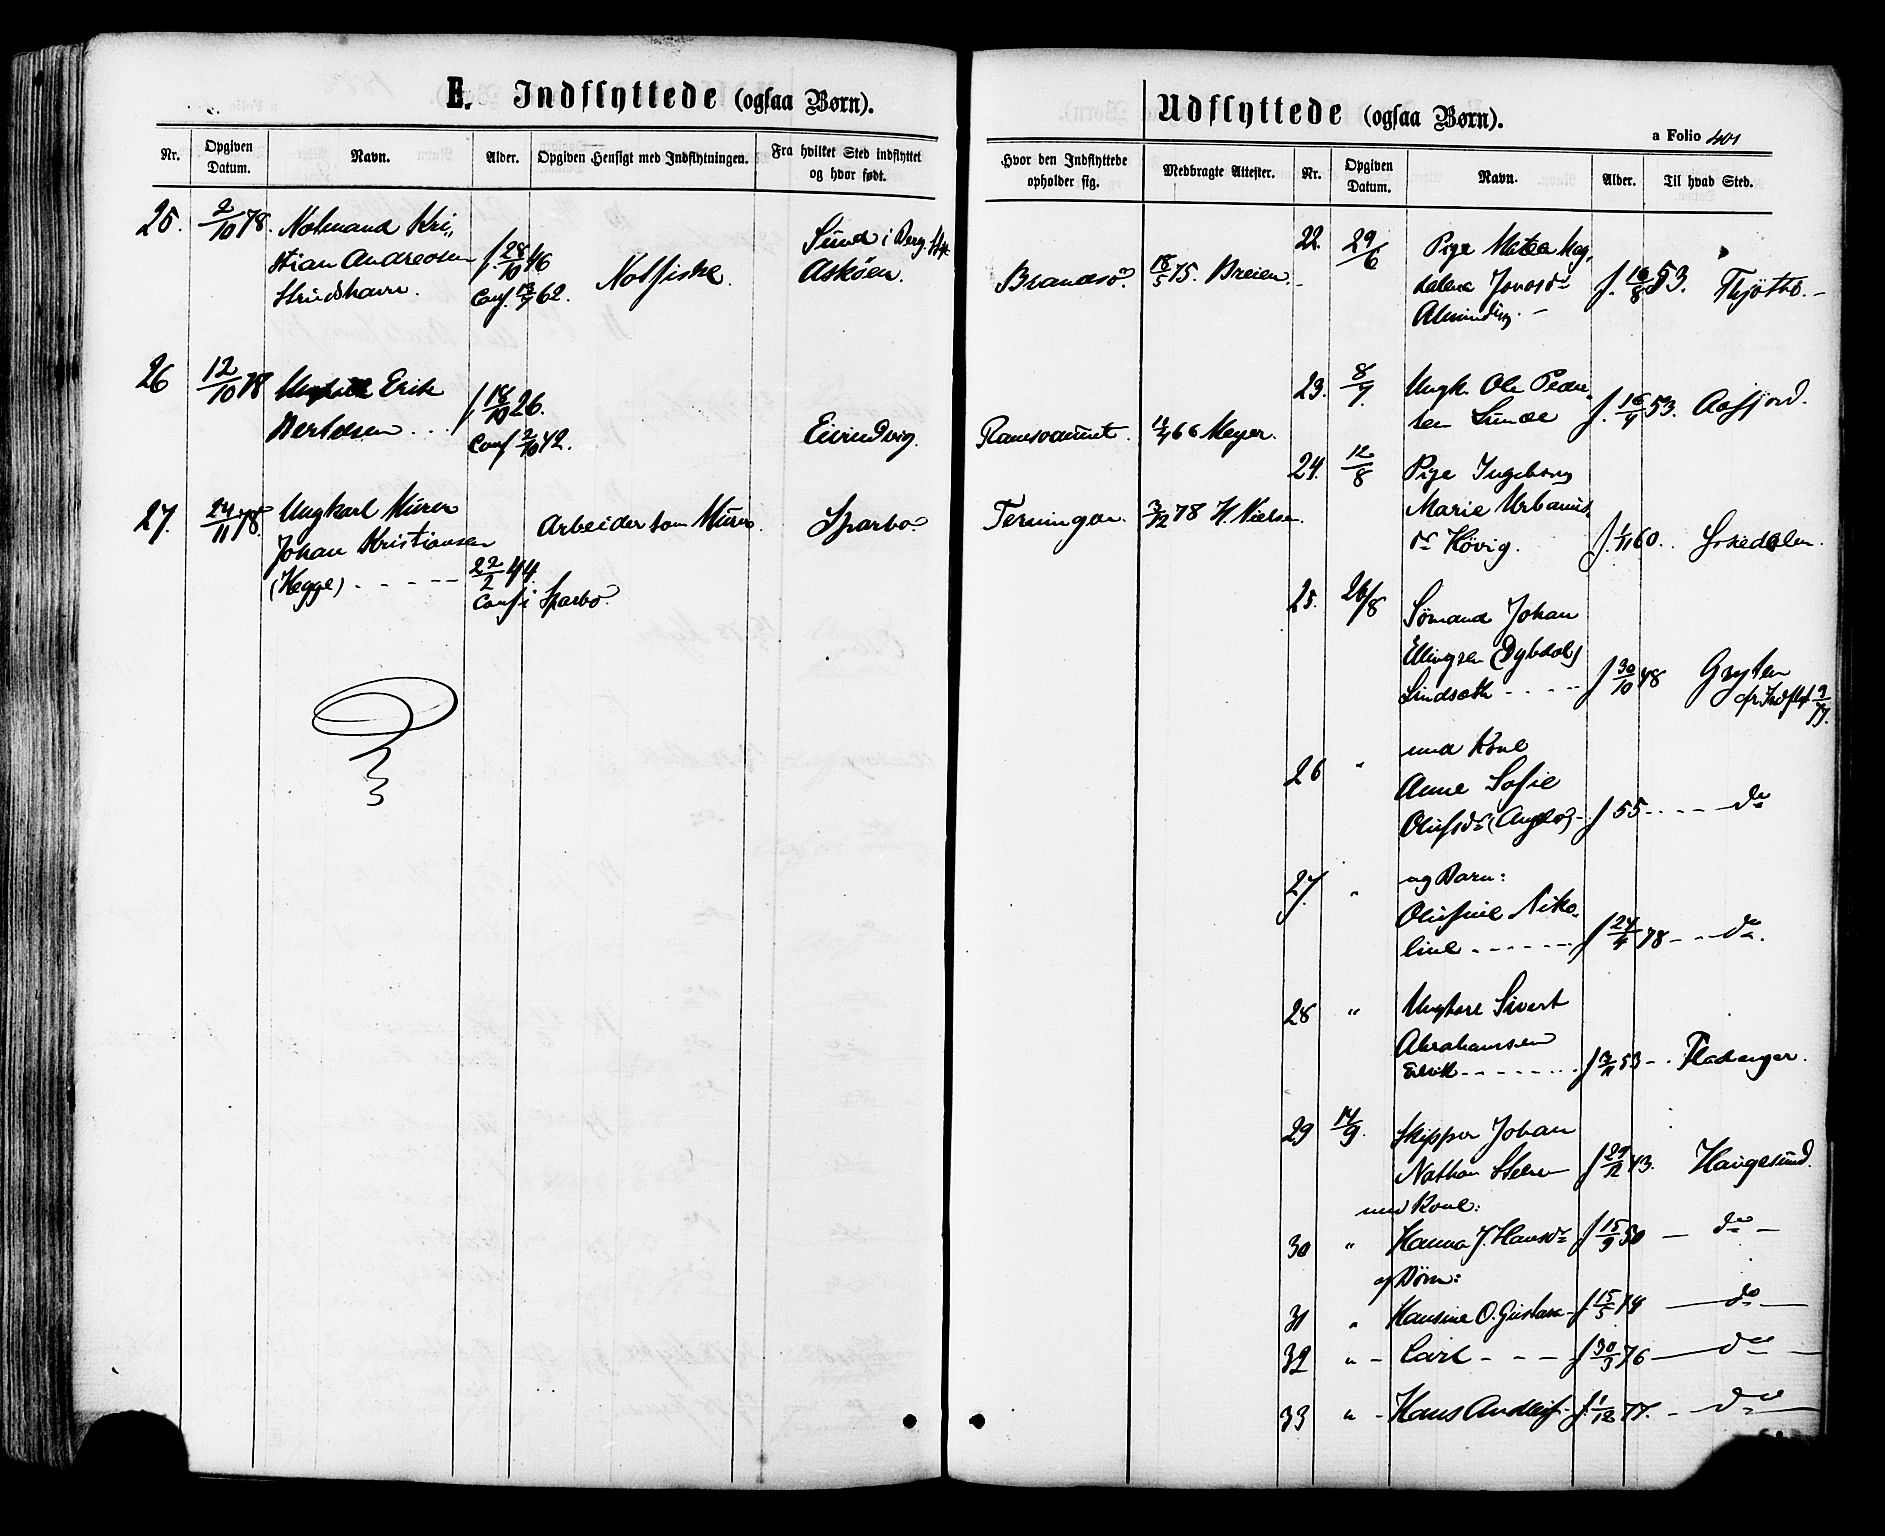 E. Indflyttede (ogsaa Børn).
Nr. Opgiven Datum. Navn. Alder. Opgiven Hensigt med Indflytningen. Fra hvilket Sted indflyttet og hvor født.
25. 2/10 78. Notmand Kri-
stian Andreasen f. 28/10 46 Notfiske. Sund i Berg. Stft.
Strudshavn. Conf. 13/7 62. Askøen.
26 12/10 78 Erik
Bertelsen . . . f. 18/10 26.
Conf 2/10 42. Eivindvig.
27. 24/11 78. Ungkarl Murer
Johan Kristiansen Arbeider som Murer. Sparbo
(Hegge) - - - - - 22/2 44.
Conf i Sparbo.
Udflyttede (ogsaa Børn).
a Folio 401
Hvor den Indflyttede opholder sig. Medbragte Attester. Nr. Opgiven Datum. Navn. Alder. Til hvad Sted.
Brandsø. 18/5 75. Breien.
Ramsvannet. 12/4 66 Meyer.
Terningen. 3/12 78 H. Nielsen.
22. 29/6 Pige Matea Mag-
dalena Jonasdr
Alminding. - f. 16/8 53. Thjøttø. -
23. 8/9. Ungk. Ole Peder-
sen Sunde f. 16/4 53. Aafjord.
24. 12/8 Pige Ingeborg
Marie Urbanus-
dr Høvig. f. 1/11 60. Ørkedalen.
25. 26/8 Sømand Johan
Ellingsen (Dybdahl)
Lindsæth - - - - f 30/10 48 Gryten
cfr. Indflyt 9/77.
26 " med Kone
Anne Sofie
Olufsdr (Angles) - f 55 - - - - do
27. " og Barn:
Olufine Niko-
line - - - - - - f 24/4 78 - - do.
28 " Ungkarl Sivert
Abrahamsen
- - - - - - - f 3/11 53 - . Fladanger.
29 14/9. Skipper Johan
Nathan Steen f 29/12 43. Haugesund.
med Kone:
30 " Hanna J. Hansdr f 15/9 50 - do -
og Børn:
31 " Hansine O. Gustava - f 15/5 74 - do -
32 " - Carl - - - f 30/3 76 - do -
33 " - Hans Andleif - f. 1/12 77. - do